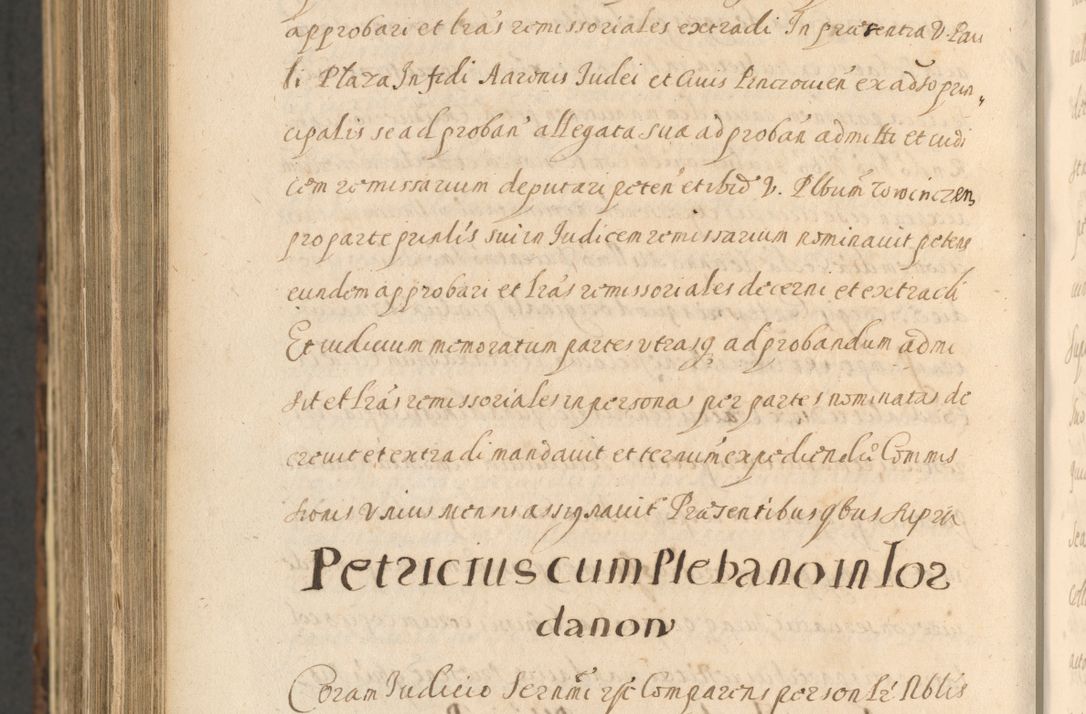 approbari et lr̃as remissoriales extradi In praesentia V. Pau
li Plaza Infidi Aaronis Iudei et Civis Pinczovien̄ ex adso prin„
cipalis se ad proban̄ allegata sua ad proban̄ admitti et iudi
cem remissarium deputari peten̄ et ibid̄ V. Plbum̄
pro parte prin̄lis sui in Iudicem remissarium nominavit petens
eundem approbari et lr̃as remissoriales decerni et extradi
Et iudicium memoratum partes utrasq ad probandum admi
sit et lr̃as remissoriales in personas per partes nominatas de
crevit et extradi mandavit et termin̄ expediendae Commis
sionis Unius Mensis assignavit Praesentibus qbus supra
Petricius cum Plebano in Ior
danow
Coram Iudicio Sernm̄i Comparens person̄lr̄ Nblis